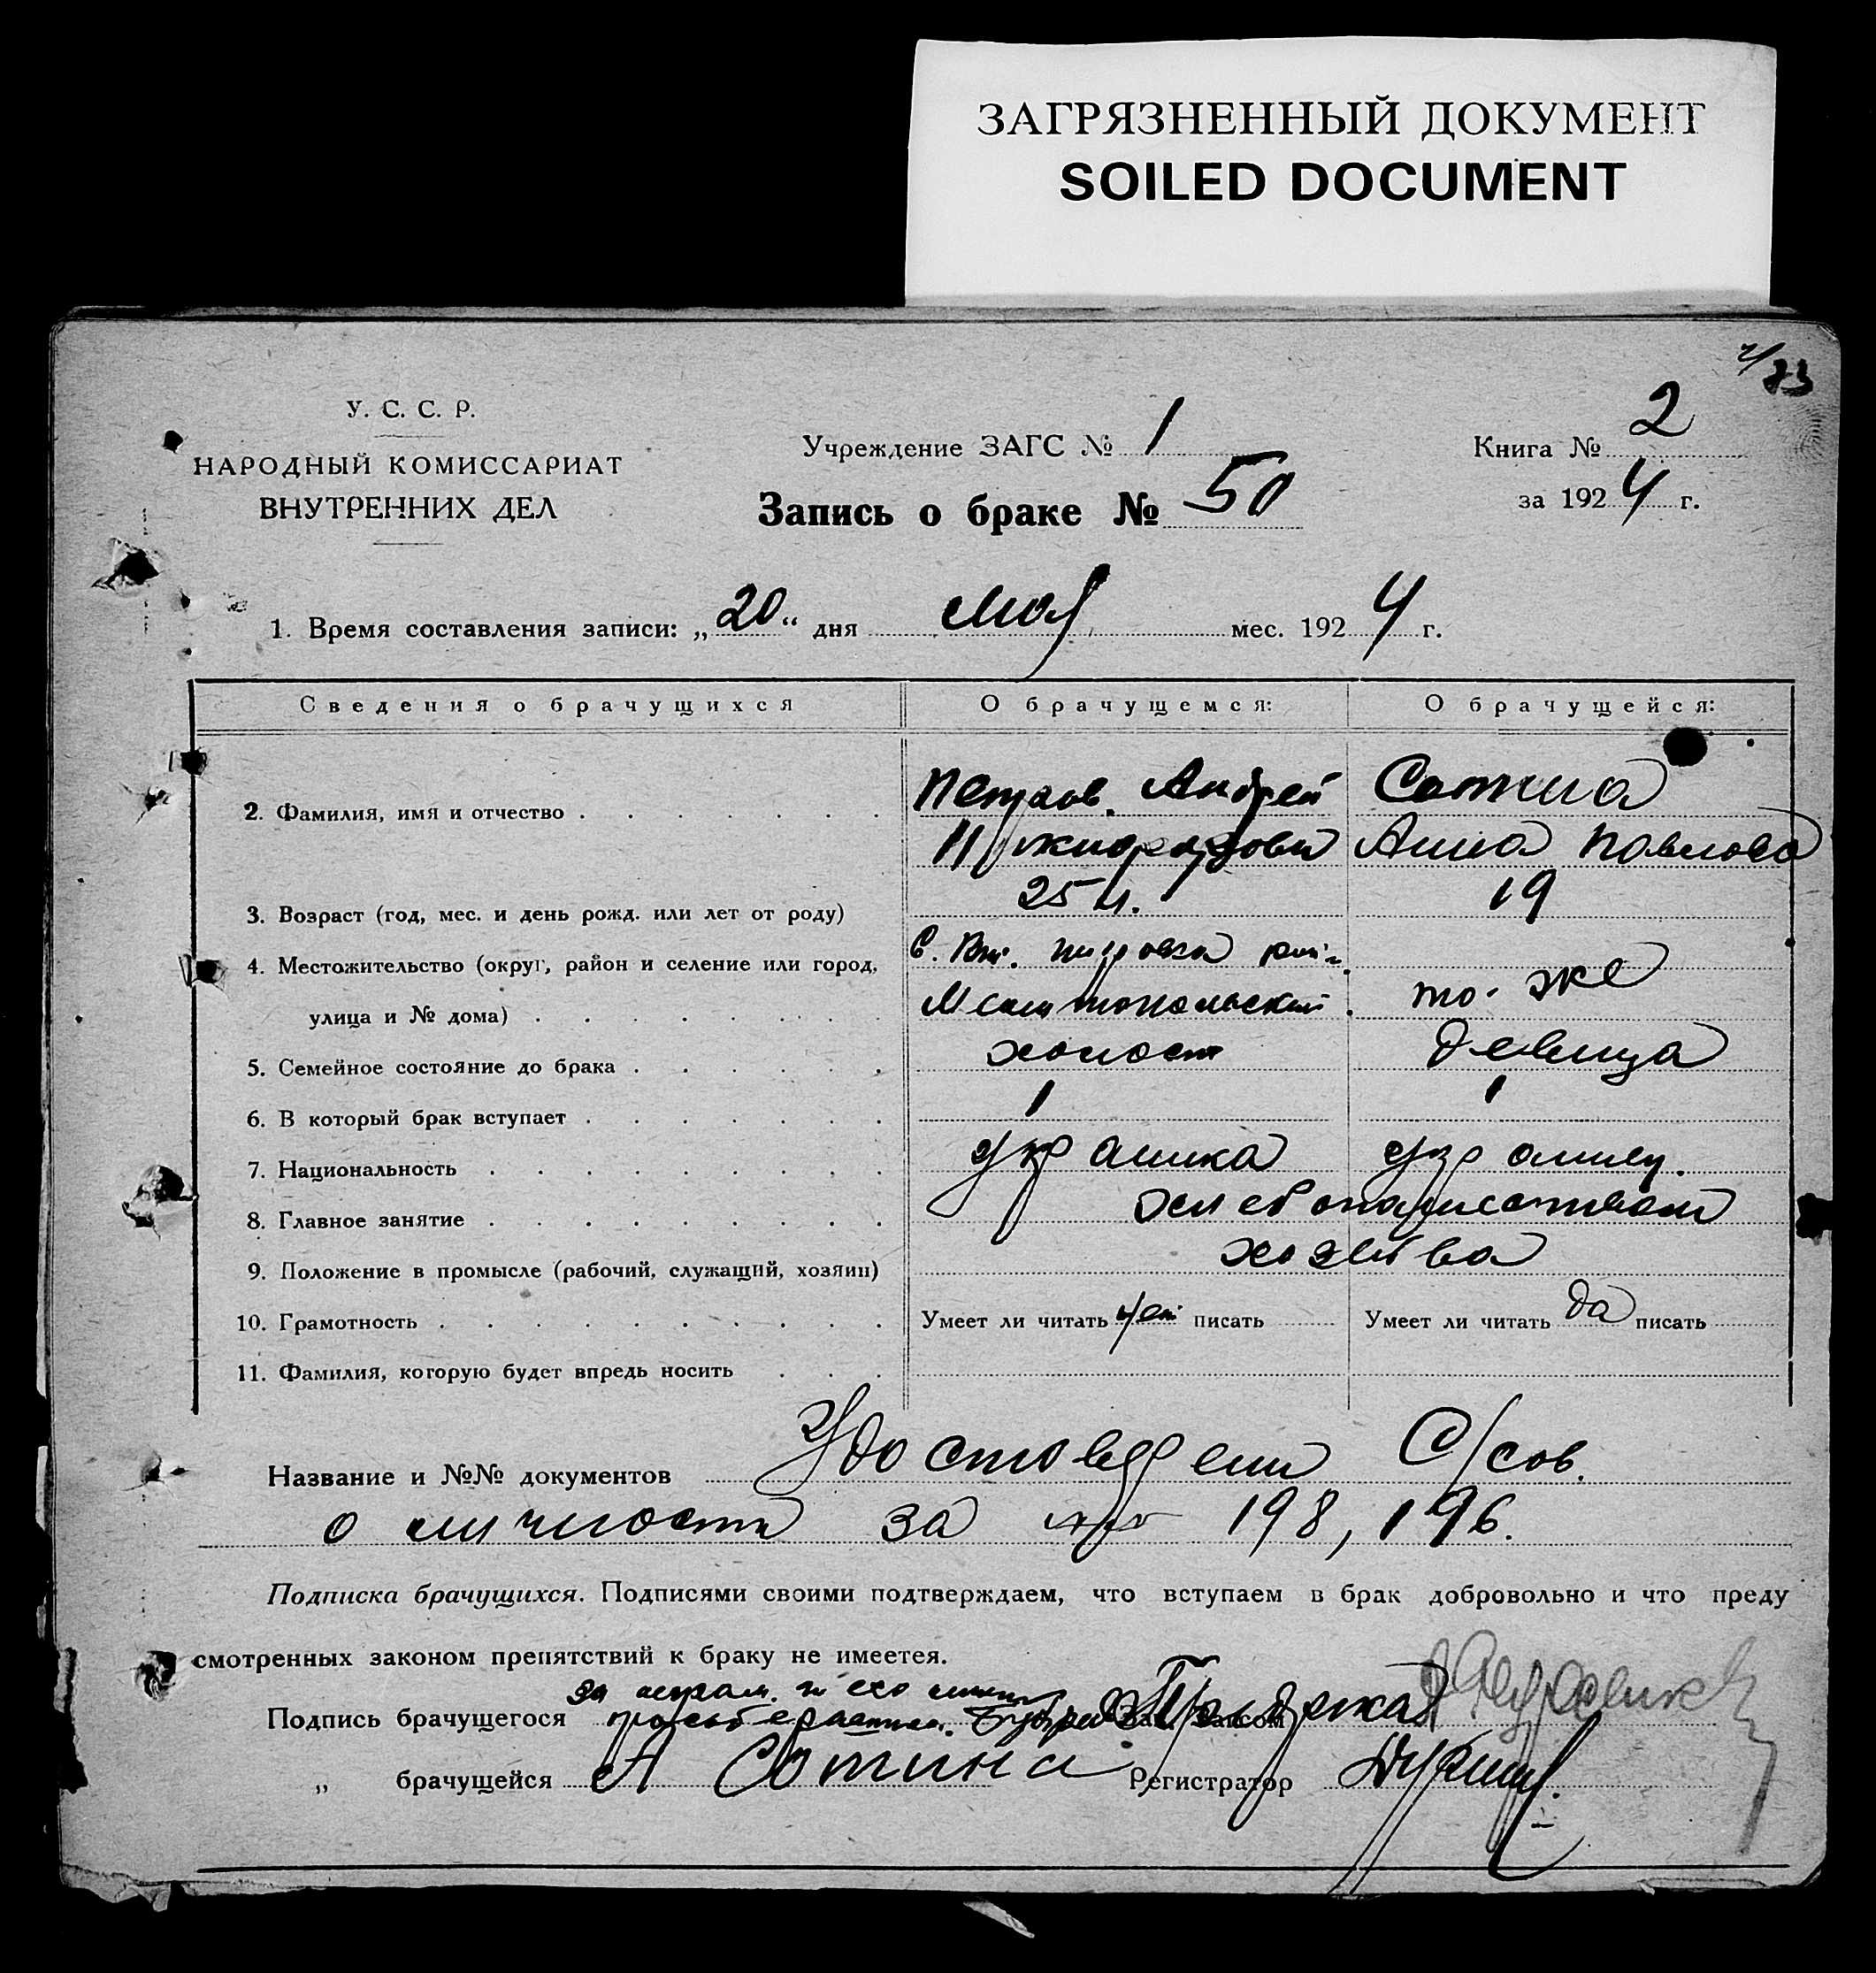 ЗАГРЯЗНЕННЫЙ ДОКУМЕНТ
SOILED DOCUMENT
У. С. С. Р.
НАРОДНЫЙ КОМИССАРИАТ
ВНУТРЕННИХ ДЕЛ
Учреждение ЗАГС № 1
Запись о браке № 50
Книга № 2
за 1924 г.
1. Время составления записи: „20“ дня мая мес. 1924 г.
Сведения о брачущихся О брачущемся: О брачущейся:
2. Фамилия, имя и отчество Петров Андрей Сотина
Анна Павлова
3. Возраст (год, мес. и день рожд. или лет от роду) 25 л. 19
4. Местожительство (округ, район и селение или город, с.
улица и № дома) Мелитопольский то-же
5. Семейное состояние до брака холост девица
6. В который брак вступает 1 1
7. Национальность
8. Главное занятие
9. Положение в промысле (рабочий, служащий, хозяин)
10. Грамотность Умеет ли читать нет писать Умеет ли читать да писать
11. Фамилия, которую будет впредь носить
Название и №№ документов С/сов.
о личности за 198, 196.
Подписка брачущихся. Подписями своими подтверждаем, что вступаем в брак добровольно и что преду
смотренных законом препятствий к браку не имеетея.
за его
Подпись брачущегося Зав. Загсом
„ брачущейся А Сотина Регистратор